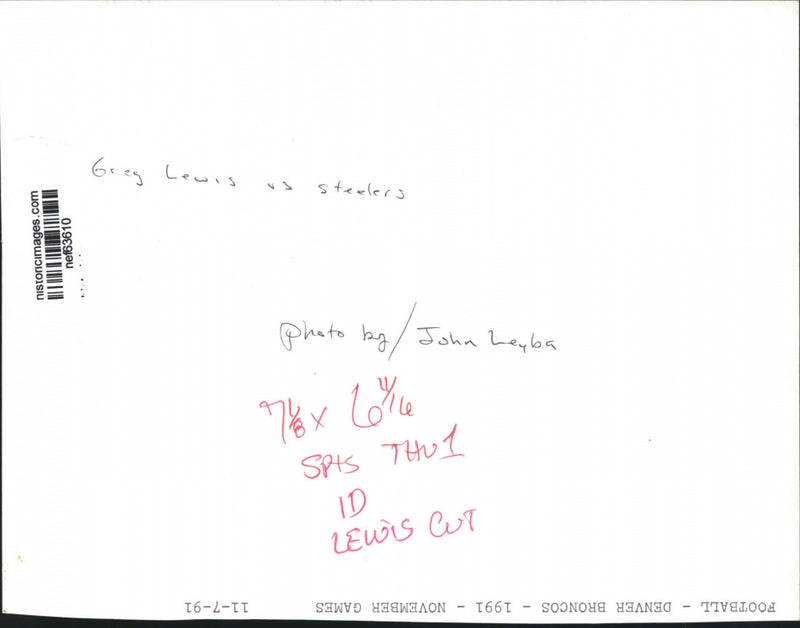 Greg Lewis vs steelers
historicimages.com
nef63610
photo by/John Leyba
7 1/8 x 6 4/16
SPTS THU 1
ID
LEWIS CUT
FOOTBALL - DENVER BRONCOS - 1991 - NOVEMBER GAMES 11-7-91